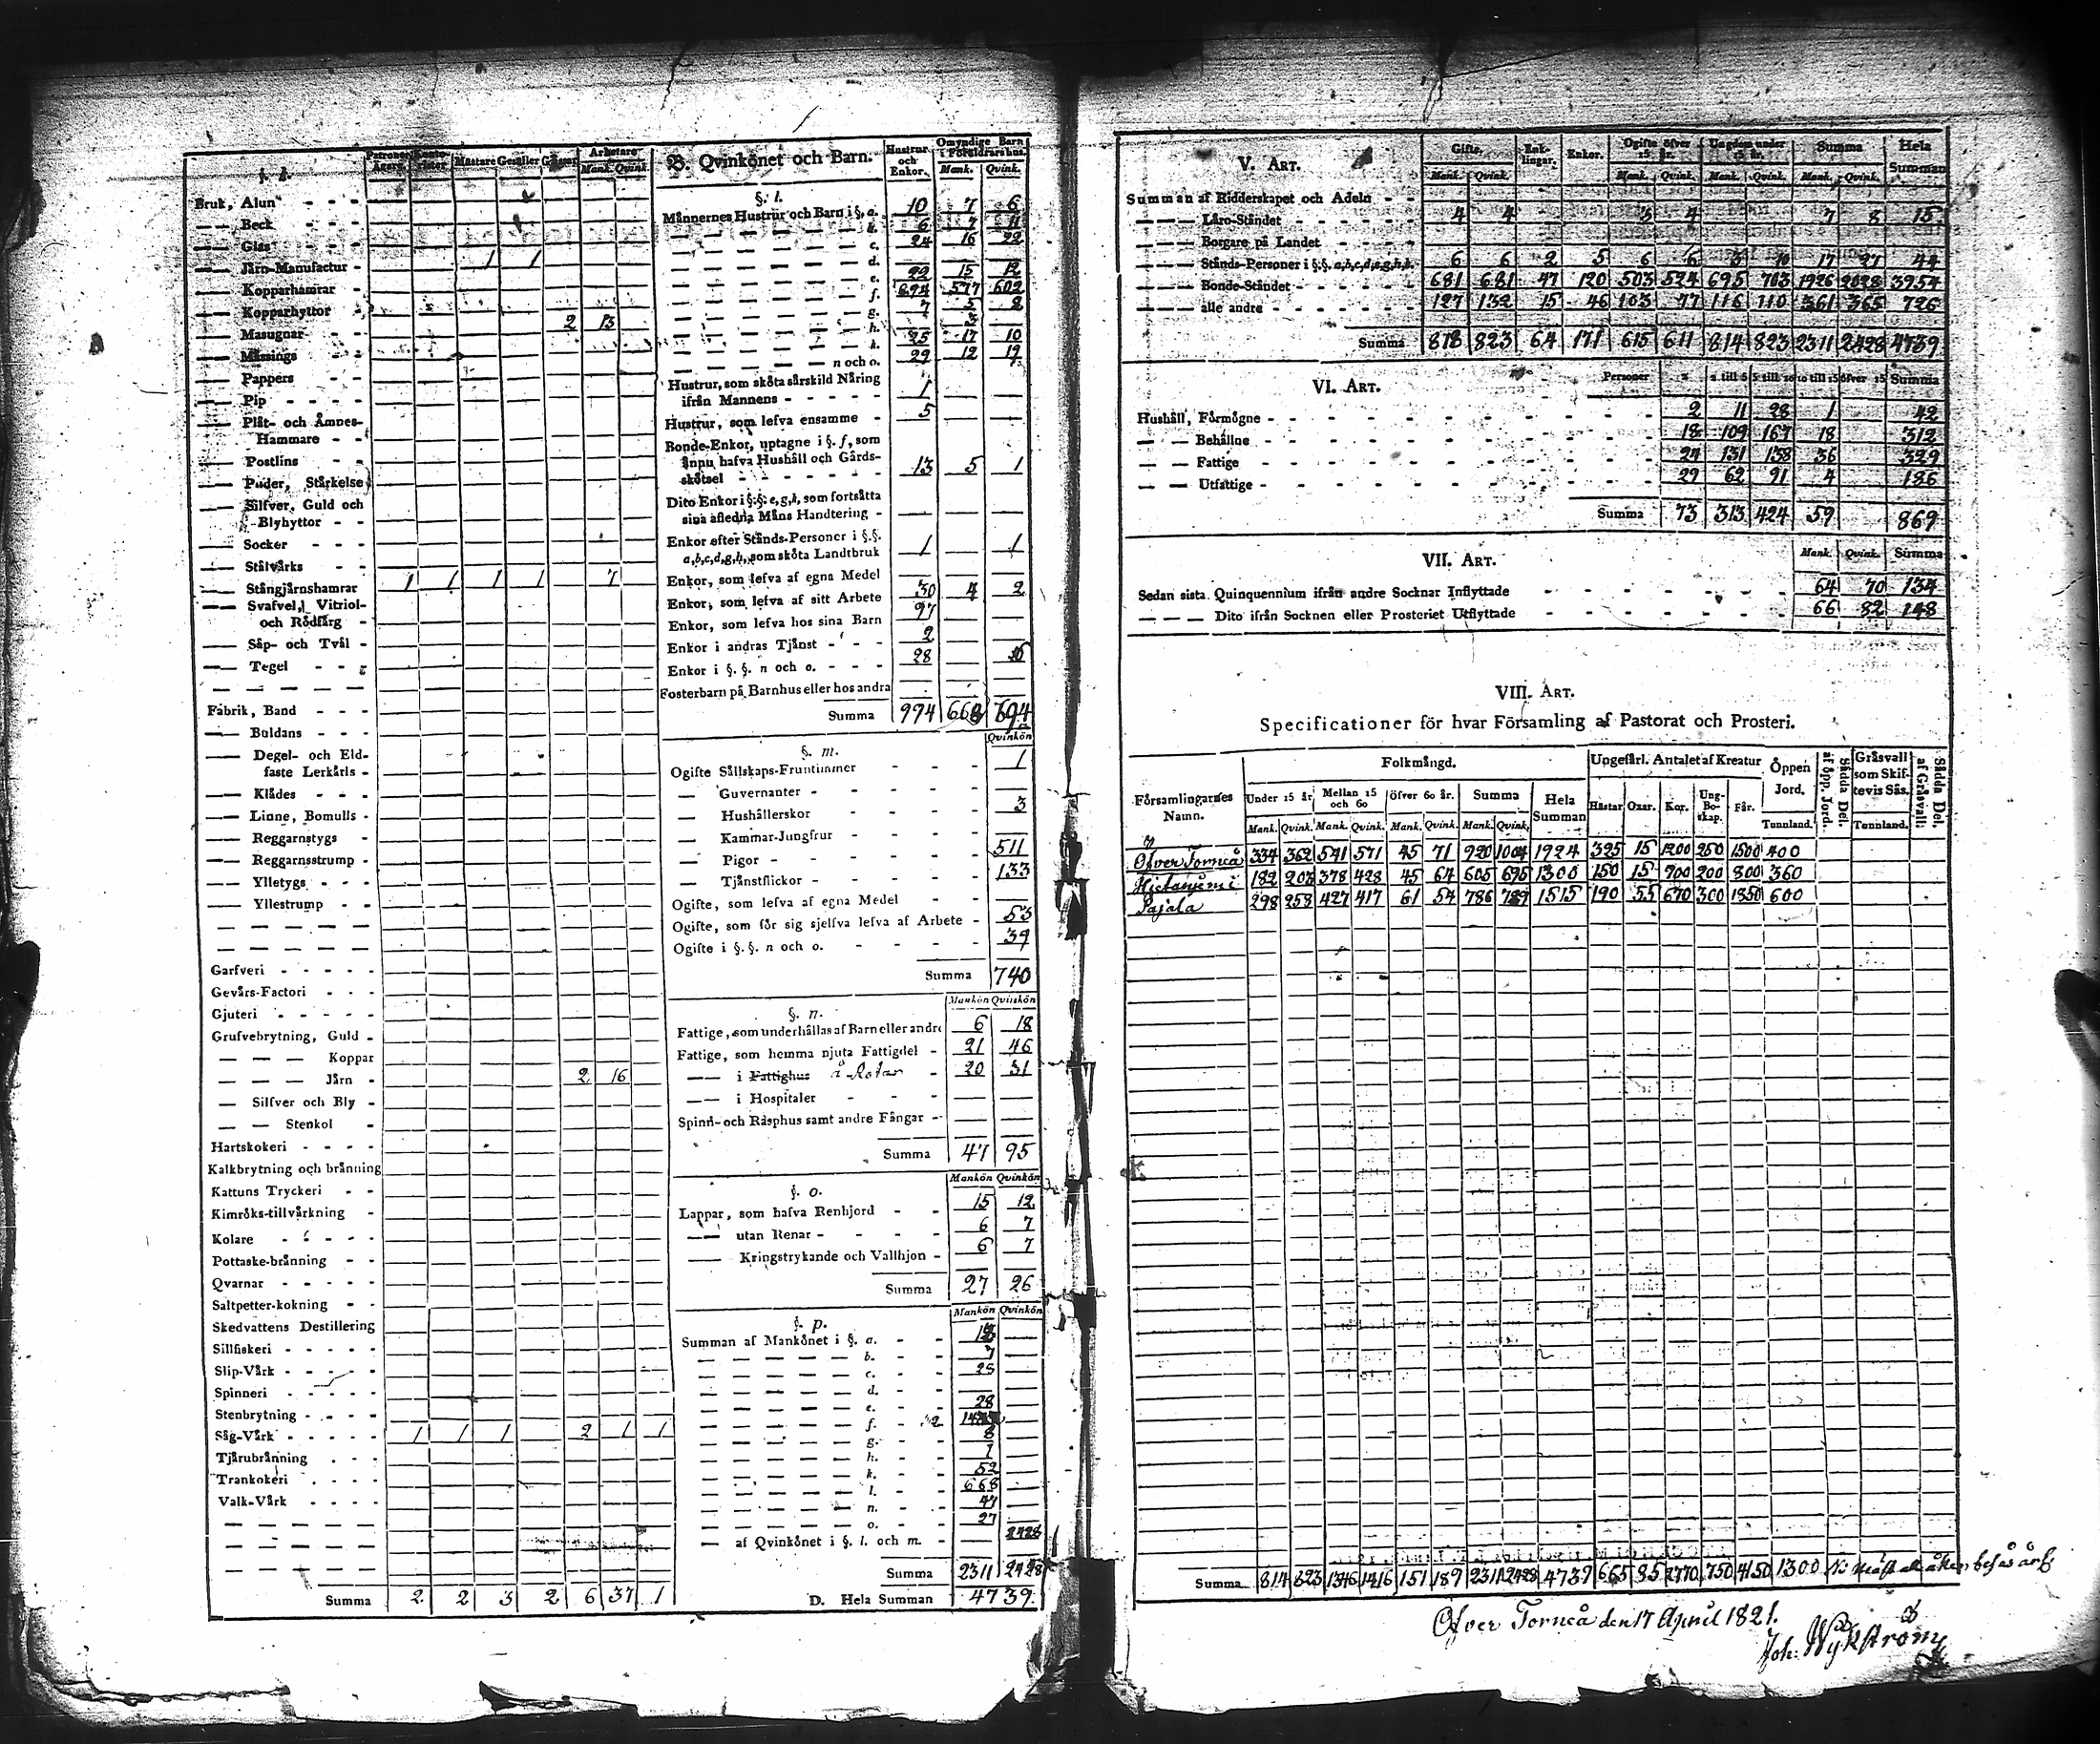 Patroner Ägare. Mästare Gesäller Arbetare Mank. Qvink.
Bruk, Alun - - -
—— Beck - - -
—— Glas - - -
—— Järn-Manufactur - 1 1
—— Kopparhamrar -
—— Kopparhyttor -
—— Masugnar - - 2 13
—— Mässings - -
—— Pappers - -
—— Pip - - - - -
—— Plåt- och Ämnes-
Hammare - -
—— Postlins - -
—— Puder, Stärkelse
—— Silfver, Guld och
Blyhyttor - -
—— Socker - - -
—— Stålvärks - -
—— Stångjärnshamrar 1 1 1 1 7
—— Svafvel, Vitriol-
och Rödfärg -
—— Såp- och Tvål -
—— Tegel - - -
Fabrik, Band - - -
—— Buldans - - -
—— Degel- och Eld-
faste Lerkärls -
—— Klädes - - -
—— Linne, Bomulls -
—— Reggarnstygs -
—— Reggarnsstrump -
—— Ylletygs - - -
—— Yllestrump - -
Garfveri - - - - -
Gevärs-Factori - - -
Gjuteri - - - - -
Grufvebrytning, Guld -
— — — Koppar
— — — Järn - 2 16
— Silfver och Bly -
— — Stenkol -
Hartskokeri - - - -
Kalkbrytning och bränning
Kattuns Tryckeri - -
Kimröks-tillvärkning -
Kolare - - - - -
Pottaske-bränning - -
Qvarnar - - - - -
Saltpetter-kokning - -
Skedvattens Destillering
Sillfiskeri - - - - -
Slip-Värk - - - -
Spinneri - - - - -
Stenbrytning - - - -
Såg-Värk - - - - - 1 1 1 2 1 1
Tjärubränning - - -
Trankokeri - - - -
Valk-Värk - - - -
Summa 2 2 3 2 6 37 1
B. Qvinkönet och Barn. Hustrur och Enkor. Omyndige Barn i Föräldrarshus. Mank. Qvink.
§. l.
Männernes Hustrur och Barn i §. a. 10 7 6
b. 6 7 11
c. 24 16 22
d.
e. 22 15 12
f. 694 577 602
g. 7 5 8
h. 3
k. 25 17 10
n och o. 29 12 19
Hustrur, som sköta särskild Näring
ifrån Mannens - - - - - 1
Hustrur, som lefva ensamme - 5
Bonde-Enkor, uptagne i §. f, som
ännu hafva Hushåll och Gårds-
skötsel - - - - - 13 5 1
Dito Enkor i §.§. e, g, k, som fortsätta
sina aflednа Mäns Handtering -
Enkor efter Stånds-Personer i §.§.
a, b, c, d, g, h, som sköta Landtbruk 1 1
Enkor, som lefva af egna Medel
Enkor, som lefva af sitt Arbete 30 4 2
Enkor, som lefva hos sina Barn 97
Enkor i andras Tjänst - - - 2
Enkor i §.§. n och o. - - - 28
Fosterbarn på Barnhus eller hos andra
Summa 994 668 694
Qvinkön
§. m.
Ogifte Sällskaps-Fruntimmer - - - 1
— Guvernanter - - - -
— Hushållerskor - - - 3
— Kammar-Jungfrur - - -
— Pigor - - - - - 511
— Tjänstflickor - - - - 133
Ogifte, som lefva af egna Medel - -
Ogifte, som för sig sjelfva lefva af Arbete - 53
Ogifte i §.§. n och o. - - - - 39
Summa 740
Mankön Qvinkön
§. n.
Fattige, som underhållas af Barn eller andre 6 18
Fattige, som hemma njuta Fattigdel - 21 46
—— i Fattighus å Rotar - 20 31
—— i Hospitaler - - -
Spinn- och Rasphus samt andre Fångar -
Summa 47 95
Mankön Qvinkön
§. o.
Lappar, som hafva Renhjord - - 15 12
—— utan Renar - - - - 6 7
—— Kringstrykande och Vallhjon - 6 7
Summa 27 26
Mankön Qvinkön
§. p.
Summan af Mankönet i §. a. - -
b. - - 7
c. - - 25
d. - -
e. - - 28
f. - -
g. - - 8
h. - - 1
k. - - 52
l. - - 668
n. - - 47
o. - - 27
— af Qvinkönet i §. l. och m. - 2428
Summa 2311 2428
D. Hela Summan 4739.
V. Art. Gifte. Mank. Qvink. Enklingar. Enkor. Ogifte öfver 15 år. Mank. Qvink. Ungdom under 15 år. Mank. Qvink. Summa Mank. Qvink. Hela Summan
Summan af Ridderskapet och Adeln - -
——— Läro-Ståndet - - - - - 4 4 3 4 7 8 15
——— Borgare på Landet - - - -
——— Stånds-Personer i §.§. a, b, c, d, e, g, h, k. 6 6 2 5 6 6 3 10 17 27 44
——— Bonde-Ståndet - - - - - 681 681 47 120 503 524 695 703 1926 2028 3954
——— alle andre - - - - - - 127 132 15 46 103 77 116 110 361 365 726
Summa 818 823 64 171 615 611 814 823 2311 2428 4739
VI. Art. Personer 2 2 till 5 5 till 10 10 till 15 öfver 15 Summa
Hushåll, Förmögne - - - 2 11 28 1 42
—— Behållne - - - 18 109 167 18 312
—— Fattige - - - 24 131 138 36 329
—— Utfattige - - - 29 62 91 4 186
Summa 73 313 424 59 869
VII. Art. Mank. Qvink. Summa
Sedan sista Quinquennium ifrån andre Socknar Inflyttade - - - 64 70 134
——— Dito ifrån Socknen eller Prosteriet Utflyttade - - - 66 82 148
VIII. Art.
Specificationer för hvar Församling af Pastorat och Prosteri.
Församlingarnes Namn. Folkmängd. Under 15 år. Mellan 15 och 60 Öfver 60 år. Summa Hela Summan Ungefärl. Antalet af Kreatur Hästar Oxar. Kor. Ung-Boskap. Får. Öppen Jord. Tunnland. Sådda Del. af öpp. Jord. Gräsvall som Skiftevis Sås. Tunnland. Sådda Del. af Gräsvall:
Mank. Qvink. Mank. Qvink. Mank. Qvink. Mank. Qvink.
Öfver Torneå 334 362 541 571 45 71 920 1004 1924 325 15 1200 250 1500 400
Hietaniemi 182 203 378 428 45 64 605 695 1300 150 15 900 200 800 360
Pajala 298 258 427 417 61 54 786 729 1515 190 55 670 300 1850 600
Summa 814 823 1346 1416 151 189 2311 2428 4739 665 85 2770 750 4150 1300
Öfver Torneå den 17 April 1821.
Joh: Wykström